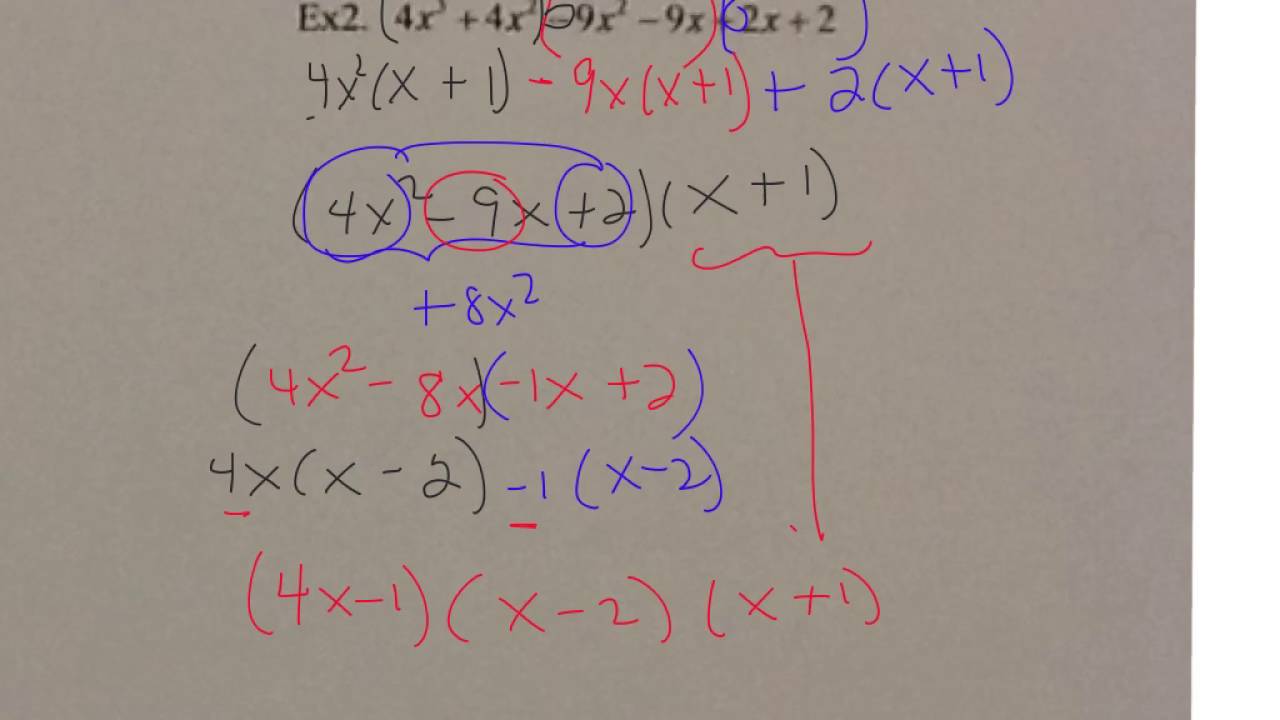 Ex2. (4x³ + 4x²) - (9x² - 9x) + (2x + 2)
4x²(x + 1) - 9x(x+1) + 2(x+1)
(4x² - 9x +2)(x + 1)
+8x²
(4x² - 8x)(-1x +2)
4x(x - 2) -1(x-2)
(4x-1)(x-2)(x+1)